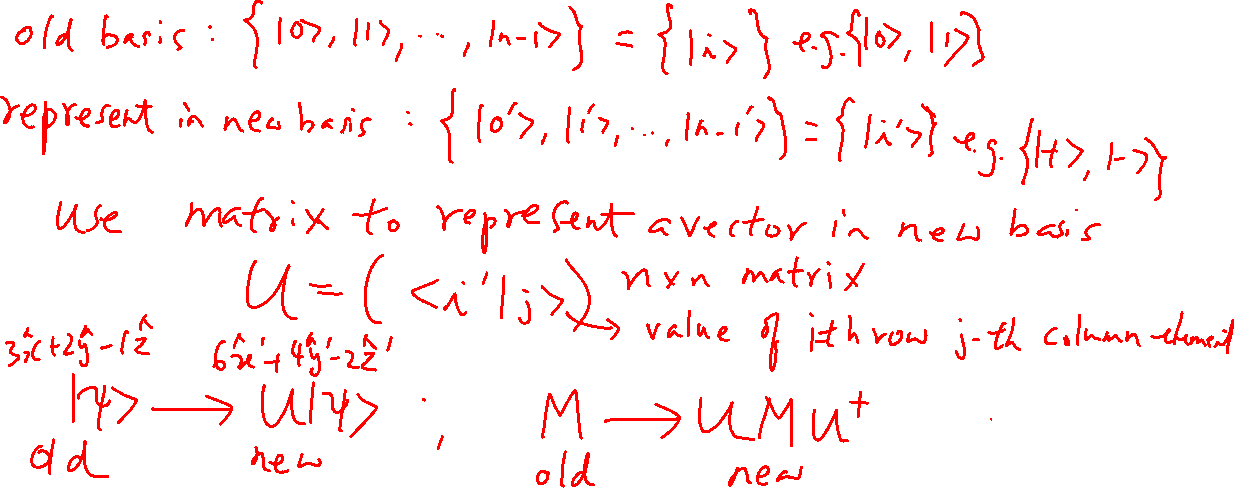 old basis : {|0>, |1>, ..., |n-1>} = {|i>} e.g. {|0>, |1>}
represent in new basis : {|0'>, |1'>, ..., |n-1'>} = {|i'>} e.g. {|+>, |->}
use matrix to represent a vector in new basis
U = (<i'|j>) n×n matrix
→ value of i-th row j-th column element
3x̂+2ŷ-1ẑ 6x̂'+4ŷ'-2ẑ'
|ψ> → U|ψ> ; M → UMU†
old new old new